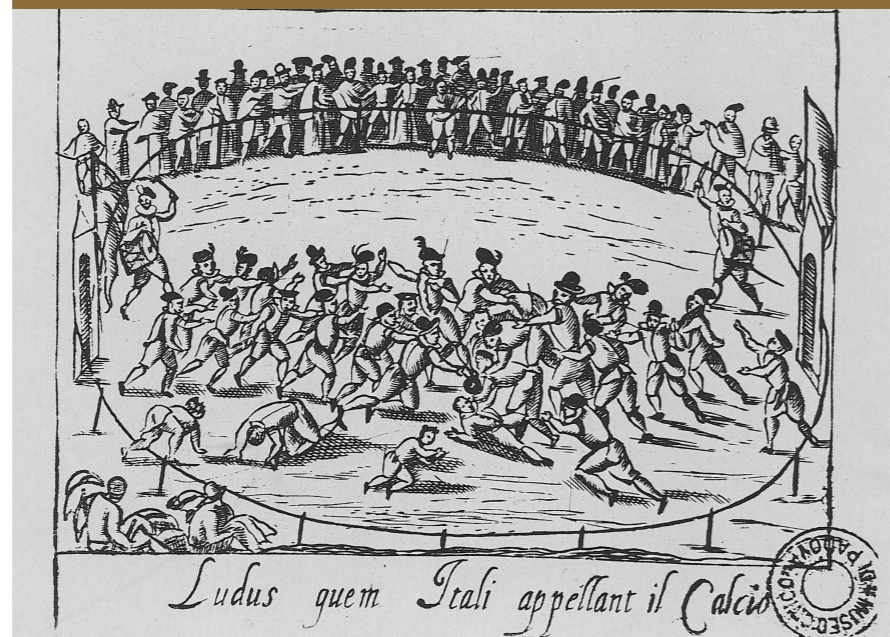 Ludus quem Itali appellant il Calcio
MUSEO CIVICO DI PADOVA